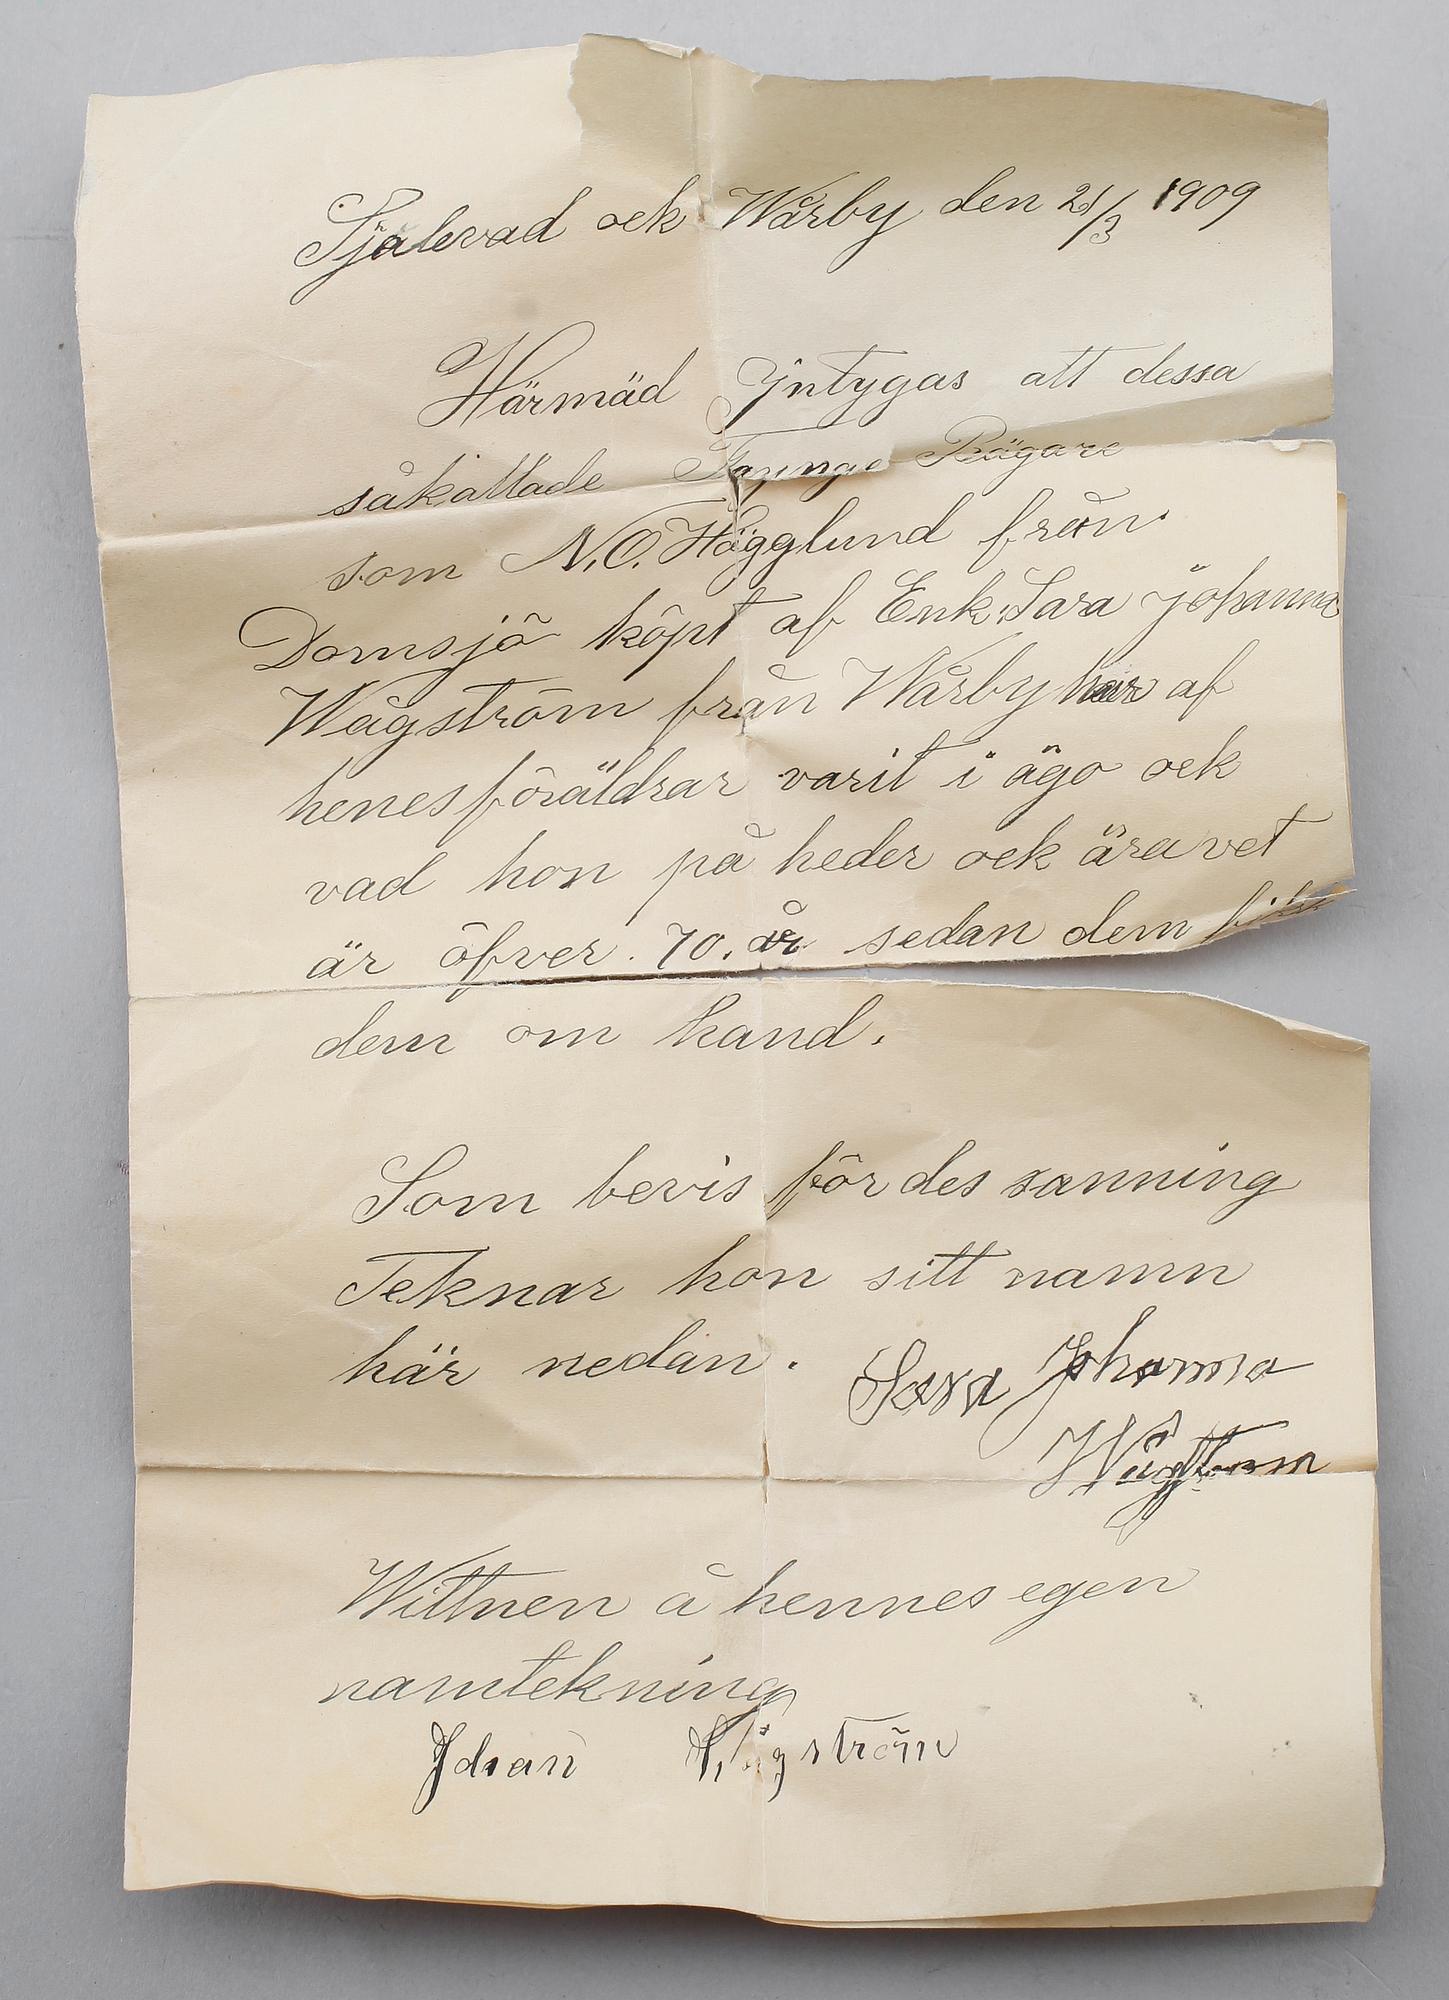 Sjalevad ock Wårby den 21/3 1909
Härmäd Yntygas att dessa
såkallade Tapnga Bägare
som N.O. Hägglund från
Domsjö köpt af Enk: Sara Johanna
Wågström från Wårby har af
henes föräldrar varit i ägo ock
vad hon på heder ock ära vet
är öfver. 70. år sedan dem fik
dem om hand.
Som bevis för des sanning
Teknar hon sitt namn
här nedan.
Sara Johanna
Wågström
Wittnen å hennes egen
namtekning
Johan Wågström